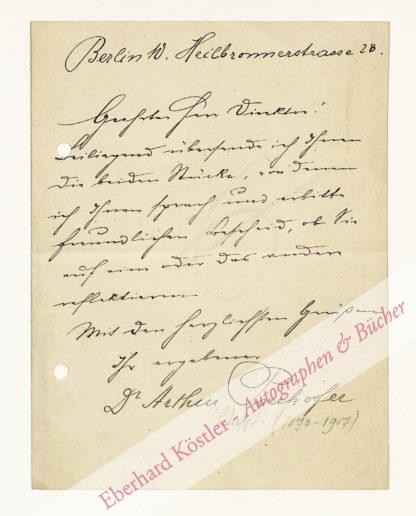 Berlin W. Heilbronnerstrasse 28.
Geehrter Herr Direktor!
Beiliegend übersende ich Ihnen
die beiden Stücke, von denen
ich Ihnen sprach und erbitte
freundlichen Bescheid, ob Sie
auf eine oder das andere
reflektieren
Mit den herzlichsten Grüßen
Ihr ergebener
Dr Arthur
Eberhard Köstler Autographen & Bücher